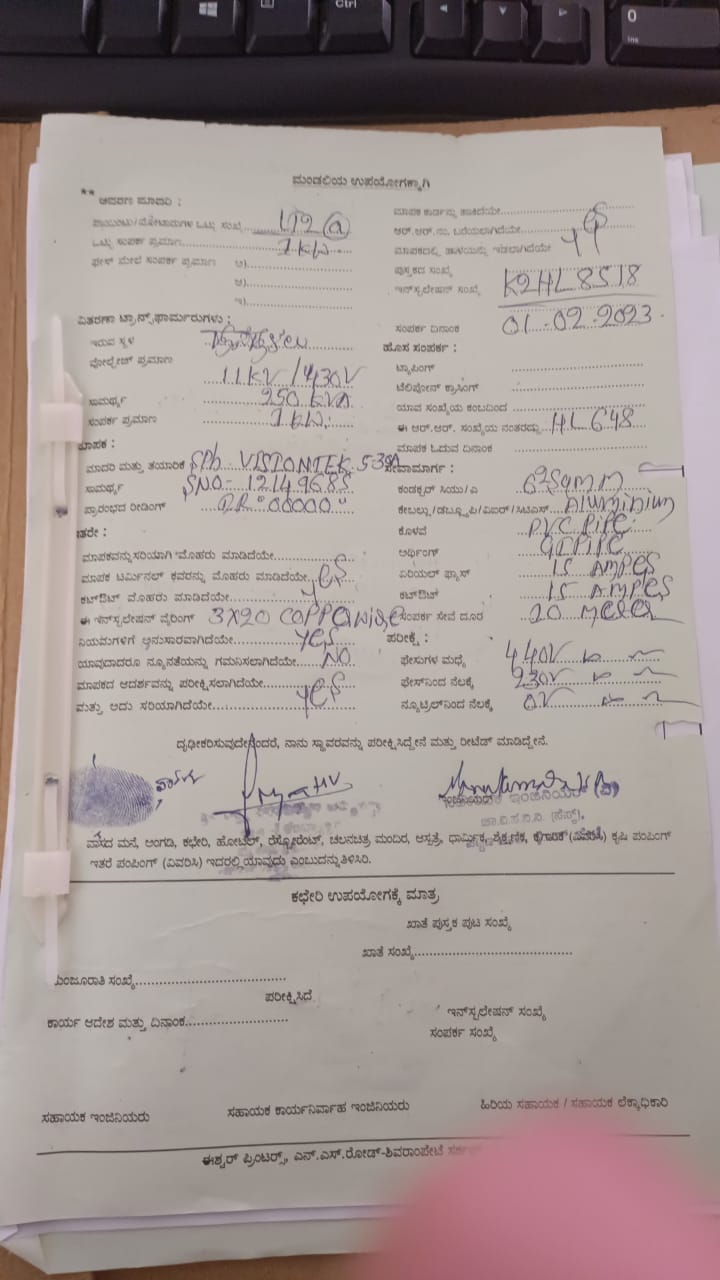 Ctrl
0
Ins
ಮಂಡಲಿಯ ಉಪಯೋಗಕ್ಕಾಗಿ
**
ಮಾಪಕ ಕಾರ್ಡನ್ನು ಹಾಕಿದೆಯೇ
LT2 (a)
ಆರ್.ಆರ್.ನಂ. ಬರೆಯಲಾಗಿದೆಯೇ
ಒಟ್ಟು ಸಂಪರ್ಕ ಪ್ರಮಾಣ 1 KW
ಫೇಸ್ ಮೇಲೆ ಸಂಪರ್ಕ ಪ್ರಮಾಣ ಅ)
ಪುಸ್ತಕದ ಸಂಖ್ಯೆ
ಆ)
ಇನ್‌ಸ್ಟಲೇಷನ್ ಸಂಖ್ಯೆ K2HL8518
ಇ)
ವಿತರಣಾ ಟ್ರಾನ್ಸ್‌ಫಾರ್ಮರುಗಳು :
ಸಂಪರ್ಕ ದಿನಾಂಕ 01-02-2023
ಇರುವ ಸ್ಥಳ
ಹೊಸ ಸಂಪರ್ಕ :
ವೋಲ್ಟೇಜ್ ಪ್ರಮಾಣ 11KV/430V
ಟ್ಯಾಪಿಂಗ್
ಟೆಲಿಫೋನ್ ಕ್ರಾಸಿಂಗ್
ಸಾಮರ್ಥ್ಯ 250 KVA
ಯಾವ ಸಂಖ್ಯೆಯ ಕಂಬದಿಂದ
ಸಂಪರ್ಕ ಪ್ರಮಾಣ 1 KW
ಈ ಆರ್.ಆರ್. ಸಂಖ್ಯೆಯ ನಂತರದ್ದು HL648
ಮಾಪಕ :
ಮಾಪಕ ಓದುವ ದಿನಾಂಕ
ಮಾದರಿ ಮತ್ತು ತಯಾರಿಕೆ SPh VISIONTEK 5-30A
ಸೇವಾಮಾರ್ಗ :
ಸಾಮರ್ಥ್ಯ SNO- 12149685
ಕಂಡಕ್ಟರ್ ಸಿಯು/ಎ
ಪ್ರಾರಂಭದ ರೀಡಿಂಗ್ "00000"
Aluminium
ಕೊಳವೆ PVC PIPE
ಇತರೇ :
ಅರ್ಥಿಂಗ್ GI PIPE
ಮಾಪಕವನ್ನು ಸರಿಯಾಗಿ ಮೊಹರು ಮಾಡಿದೆಯೇ
ಮಾಪಕ ಟರ್ಮಿನಲ್ ಕವರನ್ನು ಮೊಹರು ಮಾಡಿದೆಯೇ yes
ಏರಿಯಲ್ ಫ್ಯೂಸ್ 15 AMPES
ಕಟ್‌ಔಟ್ ಮೊಹರು ಮಾಡಿದೆಯೇ
ಕಟ್‌ಔಟ್ 15 AMPES
ಈ ಇನ್‌ಸ್ಟಲೇಷನ್ ವೈರಿಂಗ್ 3X20 COPPER
ಸಂಪರ್ಕ ಸೇವೆ ದೂರ 20 Meter
ನಿಯಮಗಳಿಗೆ ಅನುಸಾರವಾಗಿದೆಯೇ YES
ಪರೀಕ್ಷೆ :
ಯಾವುದಾದರೂ ನ್ಯೂನತೆಯನ್ನು ಗಮನಿಸಲಾಗಿದೆಯೇ NO
ಫೇಸುಗಳ ಮಧ್ಯೆ 440V
ಮಾಪಕದ ಆದರ್ಶವನ್ನು ಪರೀಕ್ಷಿಸಲಾಗಿದೆಯೇ
ಫೇಸ್‌ನಿಂದ ನೆಲಕ್ಕೆ 230V
ಮತ್ತು ಅದು ಸರಿಯಾಗಿದೆಯೇ yes
ನ್ಯೂಟ್ರಲ್‌ನಿಂದ ನೆಲಕ್ಕೆ 0V
ದೃಢೀಕರಿಸುವುದೇನೆಂದರೆ, ನಾನು ಸ್ಥಾವರವನ್ನು ಪರೀಕ್ಷಿಸಿದ್ದೇನೆ ಮತ್ತು ರೀಟೆಡ್ ಮಾಡಿದ್ದೇನೆ.
ವಾಸದ ಮನೆ, ಅಂಗಡಿ, ಕಛೇರಿ, ಹೋಟೆಲ್, ರೆಸ್ಟೋರೆಂಟ್, ಚಲನಚಿತ್ರ ಮಂದಿರ, ಆಸ್ಪತ್ರೆ, ಧಾರ್ಮಿಕ, ಶೈಕ್ಷಣಿಕ, ಕೈಗಾರಿಕೆ (ವಿವರಿಸಿ) ಕೃಷಿ ಪಂಪಿಂಗ್
ಇತರೆ ಪಂಪಿಂಗ್ (ವಿವರಿಸಿ) ಇದರಲ್ಲಿ ಯಾವುದು ಎಂಬುದನ್ನು ತಿಳಿಸಿರಿ.
ಕಛೇರಿ ಉಪಯೋಗಕ್ಕೆ ಮಾತ್ರ
ಖಾತೆ ಪುಸ್ತಕ ಪುಟ ಸಂಖ್ಯೆ
ಖಾತೆ ಸಂಖ್ಯೆ
ಮಂಜೂರಾತಿ ಸಂಖ್ಯೆ
ಪರೀಕ್ಷಿಸಿದೆ
ಇನ್‌ಸ್ಟಲೇಷನ್ ಸಂಖ್ಯೆ
ಕಾರ್ಯ ಆದೇಶ ಮತ್ತು ದಿನಾಂಕ
ಸಂಪರ್ಕ ಸಂಖ್ಯೆ
ಸಹಾಯಕ ಇಂಜಿನಿಯರು
ಸಹಾಯಕ ಕಾರ್ಯನಿರ್ವಾಹ ಇಂಜಿನಿಯರು
ಹಿರಿಯ ಸಹಾಯಕ / ಸಹಾಯಕ ಲೆಕ್ಕಾಧಿಕಾರಿ
ಈಶ್ವರ್ ಪ್ರಿಂಟರ್ಸ್, ಎನ್.ಎಸ್.ರೋಡ್-ಶಿವರಾಂಪೇಟೆ